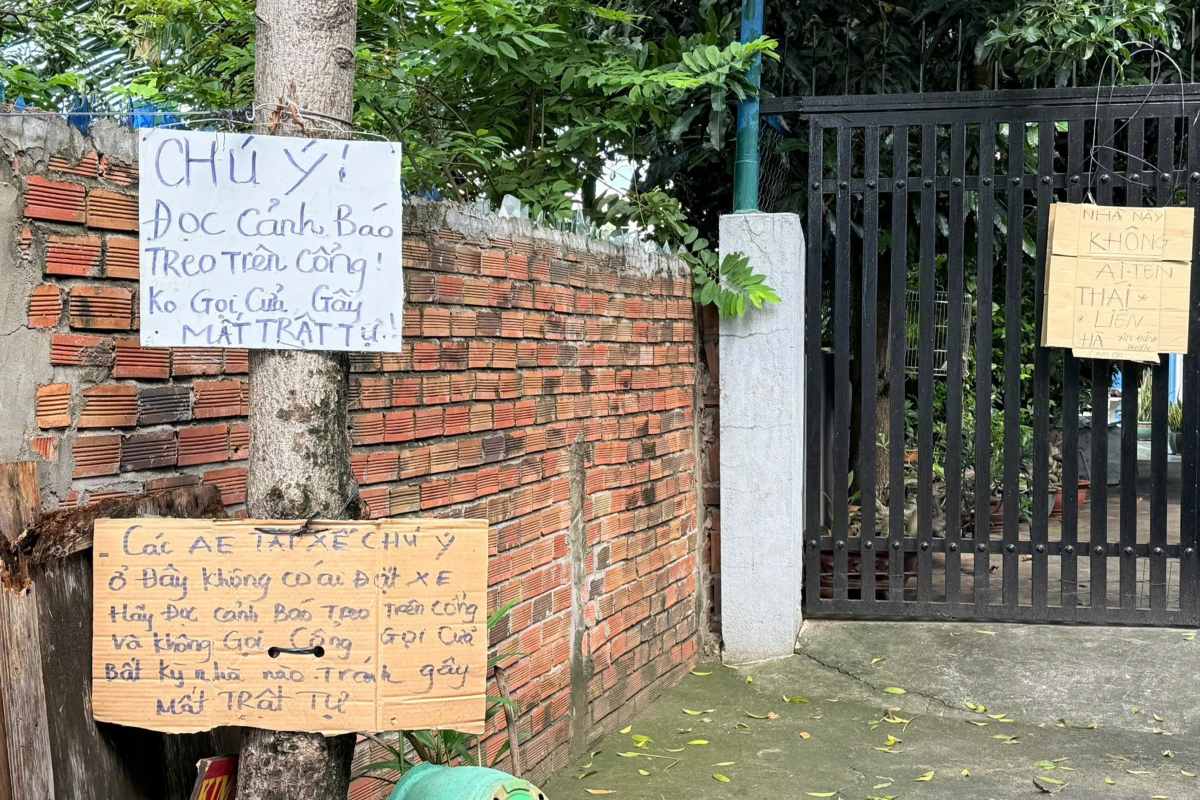 CHÚ Ý!
ĐỌC CẢNH BÁO
TREO TRÊN CỔNG!
KO GỌI CỬA GÂY
MẤT TRẬT TỰ!
- CÁC AE TÀI XẾ CHÚ Ý
Ở ĐÂY KHÔNG CÓ AI ĐẶT XE
HÃY ĐỌC CẢNH BÁO TREO TRÊN CỔNG
VÀ KHÔNG GỌI CỔNG GỌI CỬA
BẤT KỲ NHÀ NÀO TRÁNH GÂY
MẤT TRẬT TỰ
NHÀ NÀY
KHÔNG
AI TÊN
THÁI
LIÊN
HÀ